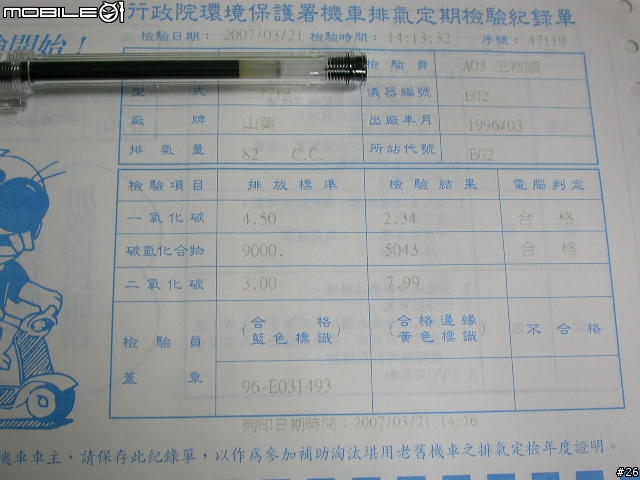 mobile01
行政院環境保護署機車排氣定期檢驗紀錄單
檢驗日期： 2007/03/21 檢驗時間： 14:13:32 序號： 47119
開始！
檢驗員 A03 王裕順
型式 二行程 儀器編號 EG2
廠牌 山葉 出廠年月 1996/03
排氣量 82 C.C. 所站代號 EG2
檢驗項目 排放標準 檢驗結果 電腦判定
一氧化碳 4.50 2.34 合格
碳氫化合物 9000. 5043 合格
二氧化碳 3.00 7.99
檢驗員蓋章 (合格藍色標識) (合格邊緣黃色標識) 不合格
96-E031493
列印日期時間：2007/03/21 14:16
機車車主，請保存此紀錄單，以作為參加補助淘汰堪用老舊機車之排氣定檢年度證明。
#26